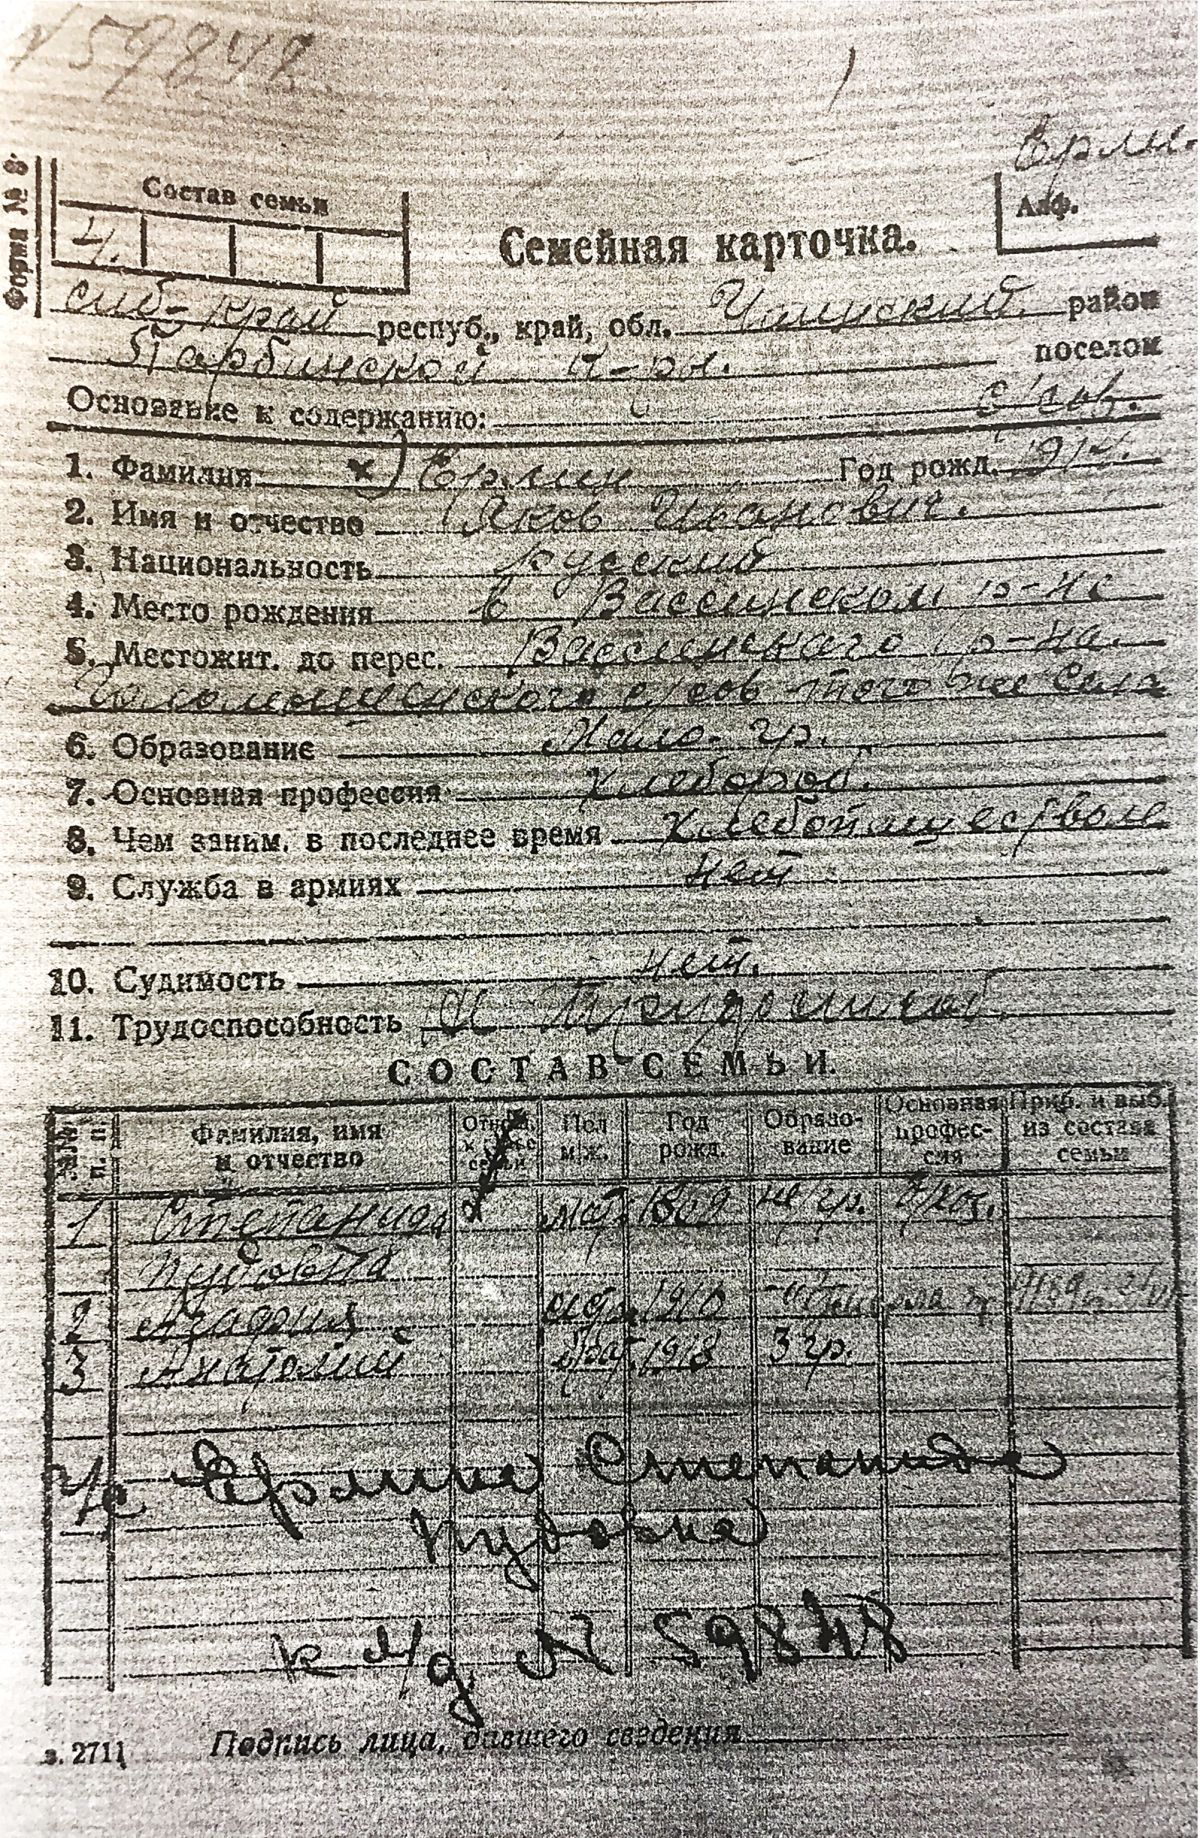 Ерли.
Форма № 8
Состав семьи
4.
Алф.
Семейная карточка.
Сиб-край респуб., край, обл. Чаинский район
Парбинской п-рн. поселок
Основание к содержанию: с/сов.
1. Фамилия Ерлин Год рожд. 1914.
2. Имя и отчество Яков Иванович.
3. Национальность Русский
4. Место рождения в Вассинском р-не
5. Местожит. до перес. Вассинского р-на.
с/сов того же села
6. Образование Мало-гр.
7. Основная профессия хлебороб.
8. Чем заним. в последнее время хлебопашеством
9. Служба в армиях нет
10. Судимость нет.
11. Трудоспособность трудоспособ.
СОСТАВ СЕМЬИ.
№№ п. п. Фамилия, имя и отчество Отнош. к главе семьи Пол м/ж. Год рожд. Образование Основная профессия Приб. и выб. из состава семьи
1 Степанида мать не гр.
Пудовна
2 1910
3 Анатолий брат 1918 3 гр.
Ерлина Степанида
Пудовна
к л/д N 59848
з. 2711 Подпись лица, давшего сведения